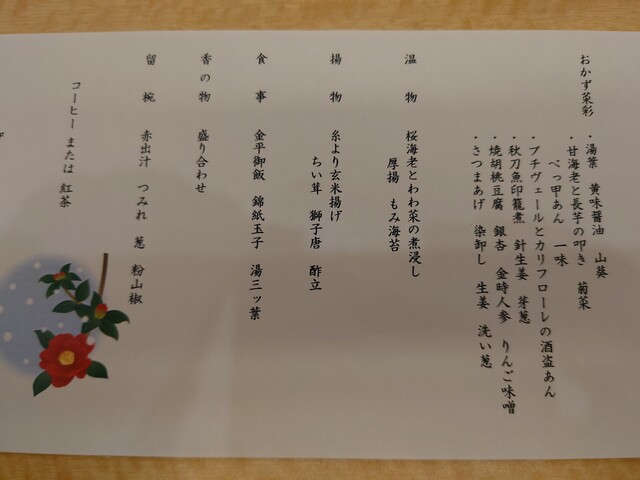 おかず菜彩
・湯葉 黄味醤油 山葵
・甘海老と長芋の叩き 菊菜
べっ甲あん 一味
・プチヴェールとカリフローレの酒盗あん
・秋刀魚印籠煮 針生姜 芽葱
・焼胡桃豆腐 銀杏 金時人参 りんご味噌
・さつまあげ 染卸し 生姜 洗い葱
温物 桜海老とわわ菜の煮浸し
厚揚 もみ海苔
揚物 糸より玄米揚げ
ちい茸 獅子唐 酢立
食事 金平御飯 錦紙玉子 湯三ッ葉
香の物 盛り合わせ
留椀 赤出汁 つみれ 葱 粉山椒
コーヒー または 紅茶